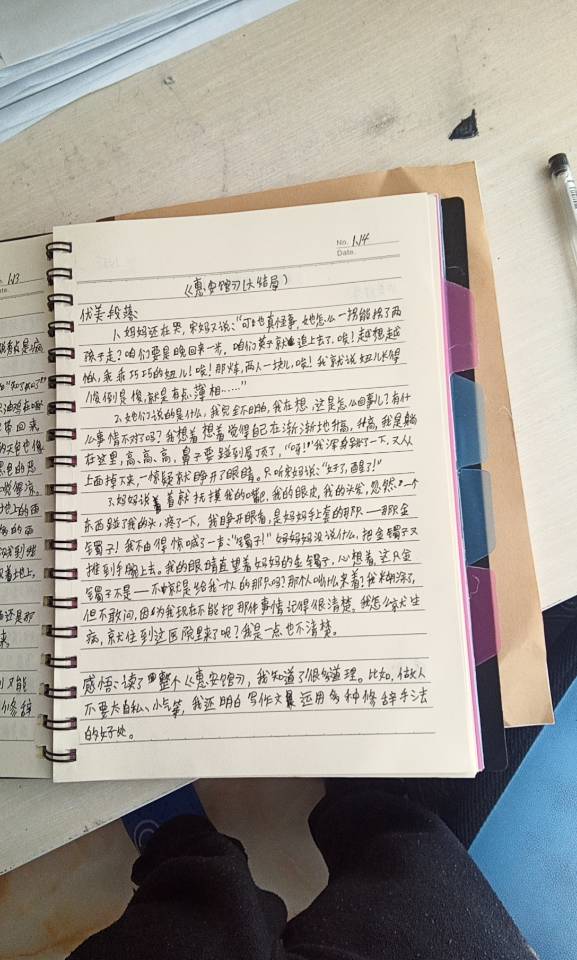 No. 1.14
Date.
《惠安馆》(大结局)
优美段落:
1、妈妈还在哭,宋妈又说:“可也真怪事,她怎么一拐能拐了两
孩子走?咱们要是晚回来一步,咱们英子就追上去了,唉!越想越
怕人,乖乖巧巧的妞儿!唉!那火车,两人一块儿,唉!我就说妞儿长得
俊倒是俊,就是有点薄相……”
2、她们说的是什么,我完全不明白,我在想,这是怎么回事儿?有什
么事情不对吗?我想着想着觉得自己在渐渐地升高,升高,我是躺
在这里,高、高、高,鼻子要碰到屋顶了,“呀!”我浑身跳了一下,又从
上面掉下来,一惊疑就睁开了眼睛。只听宋妈说:“好了,醒了!”
3、妈妈说着就抚摸我的嘴巴,我的眼皮,我的头发,忽然一个
东西碰了我的头,疼了一下,我睁开眼看,是妈妈手上套的那只——那只金
镯子!我不由得惊喊了一声:“镯子!”妈妈没说什么,把金镯子又
推到手腕上去。我的眼睛直望着妈妈的金镯子,心想着,这只金
镯子不是——不就是给我一个人的那只吗?那个人叫什么来着?我糊涂了,
但不敢问,因为我现在不能把那件事情记得很清楚。我怎么就生
病,就住到这医院里来了呢?我是一点也不清楚。
感悟:读了整个《惠安馆》,我知道了很多道理。比如,做人
不要太自私、小气等,我还明白写作文运用多种修辞手法
的好处。
1.13